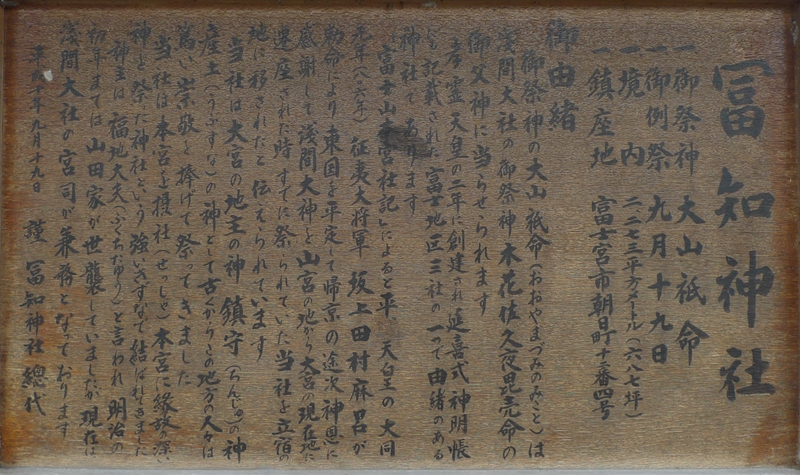 冨知神社
一御祭神 大山祇命
一御例祭 九月十九日
一境内 二二七三平方メートル(六八七坪)
一鎮座地 富士宮市朝日町十二番四号
御由緒
御祭神の大山祇命(おおやまづみのみこと)は
浅間大社の御祭神 木花佐久夜毘売命の
御父神に当らせられます
孝霊天皇の二年に創建され延喜式神明帳
にも記載された富士地区三社の一つで由緒のある
神社であります
富士山本宮社記によると平 天皇の大同
元年(八〇六年) 征夷大将軍 坂上田村麻呂が
勅命により東国を平定して帰京の途次神恩に
感謝して浅間大神を山宮の地から大宮の現在地に
遷座された時すでに祭られていた当社を立宿の
地に移されたと伝えられています
当社は大宮の地主の神 鎮守(ちんじゅ)の神
産土(うぶすな)の神として古くからこの地方の人々は
篤い崇敬を捧げて祭ってきました
当社は本宮を摂社(せっしゃ)本宮に縁故の深い
神を祭った神社という強いきずなで結ばれてきました
神主は福地大夫(ふくちだゆう)と言われ明治の
初年までは山田家が世襲していましたが現在は
浅間大社の宮司が兼務となっております
平成十年九月十九日
謹 冨知神社総代